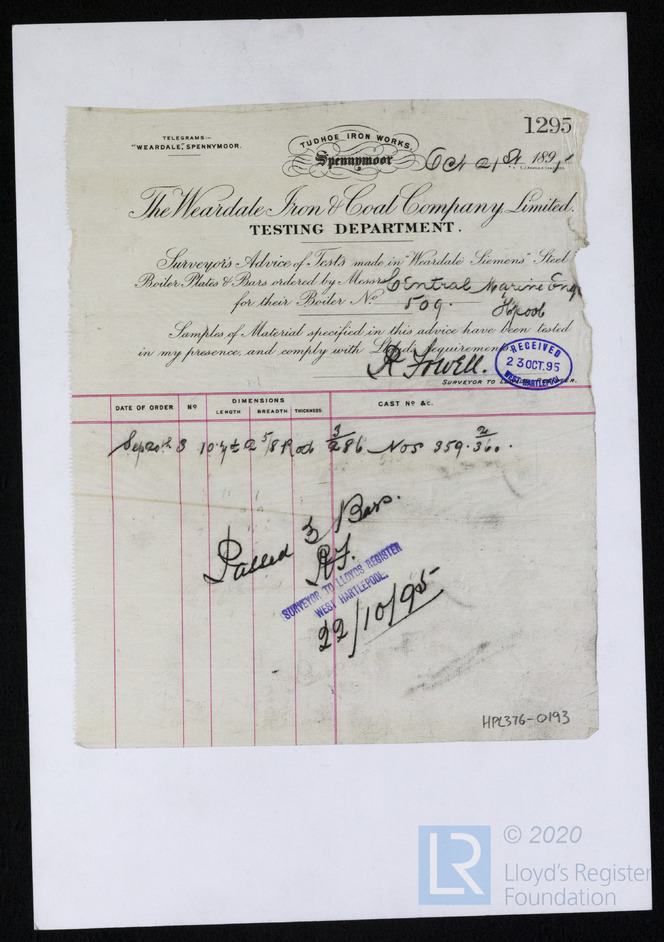 1295
TELEGRAMS:-
"WEARDALE," SPENNYMOOR.
TUDHOE IRON WORKS,
Spennymoor Oct 21st 1895
The Weardale Iron & Coal Company, Limited.
TESTING DEPARTMENT.
Surveyor's Advice of Tests made in "Weardale Siemens" Steel
Boiler Plates & Bars ordered by Messrs Central Marine Eng
for their Boiler No. 509. Hpool
Samples of Material specified in this advice have been tested
in my presence, and comply with Lloyds requirements
R Fowell.
SURVEYOR TO LLOYDS REGISTER.
RECEIVED
23 OCT. 95
WEST HARTLEPOOL
DATE OF ORDER No DIMENSIONS LENGTH BREADTH THICKNESS CAST No &c.
Sep 20th 3 10. 2 5/8 Rod 3/286 Nos 359. 2/360.
Passed 3 Bars.
RF.
SURVEYOR TO LLOYDS REGISTER
WEST HARTLEPOOL.
22/10/95
HPL376-0193
LR
© 2020
Lloyd's Register
Foundation